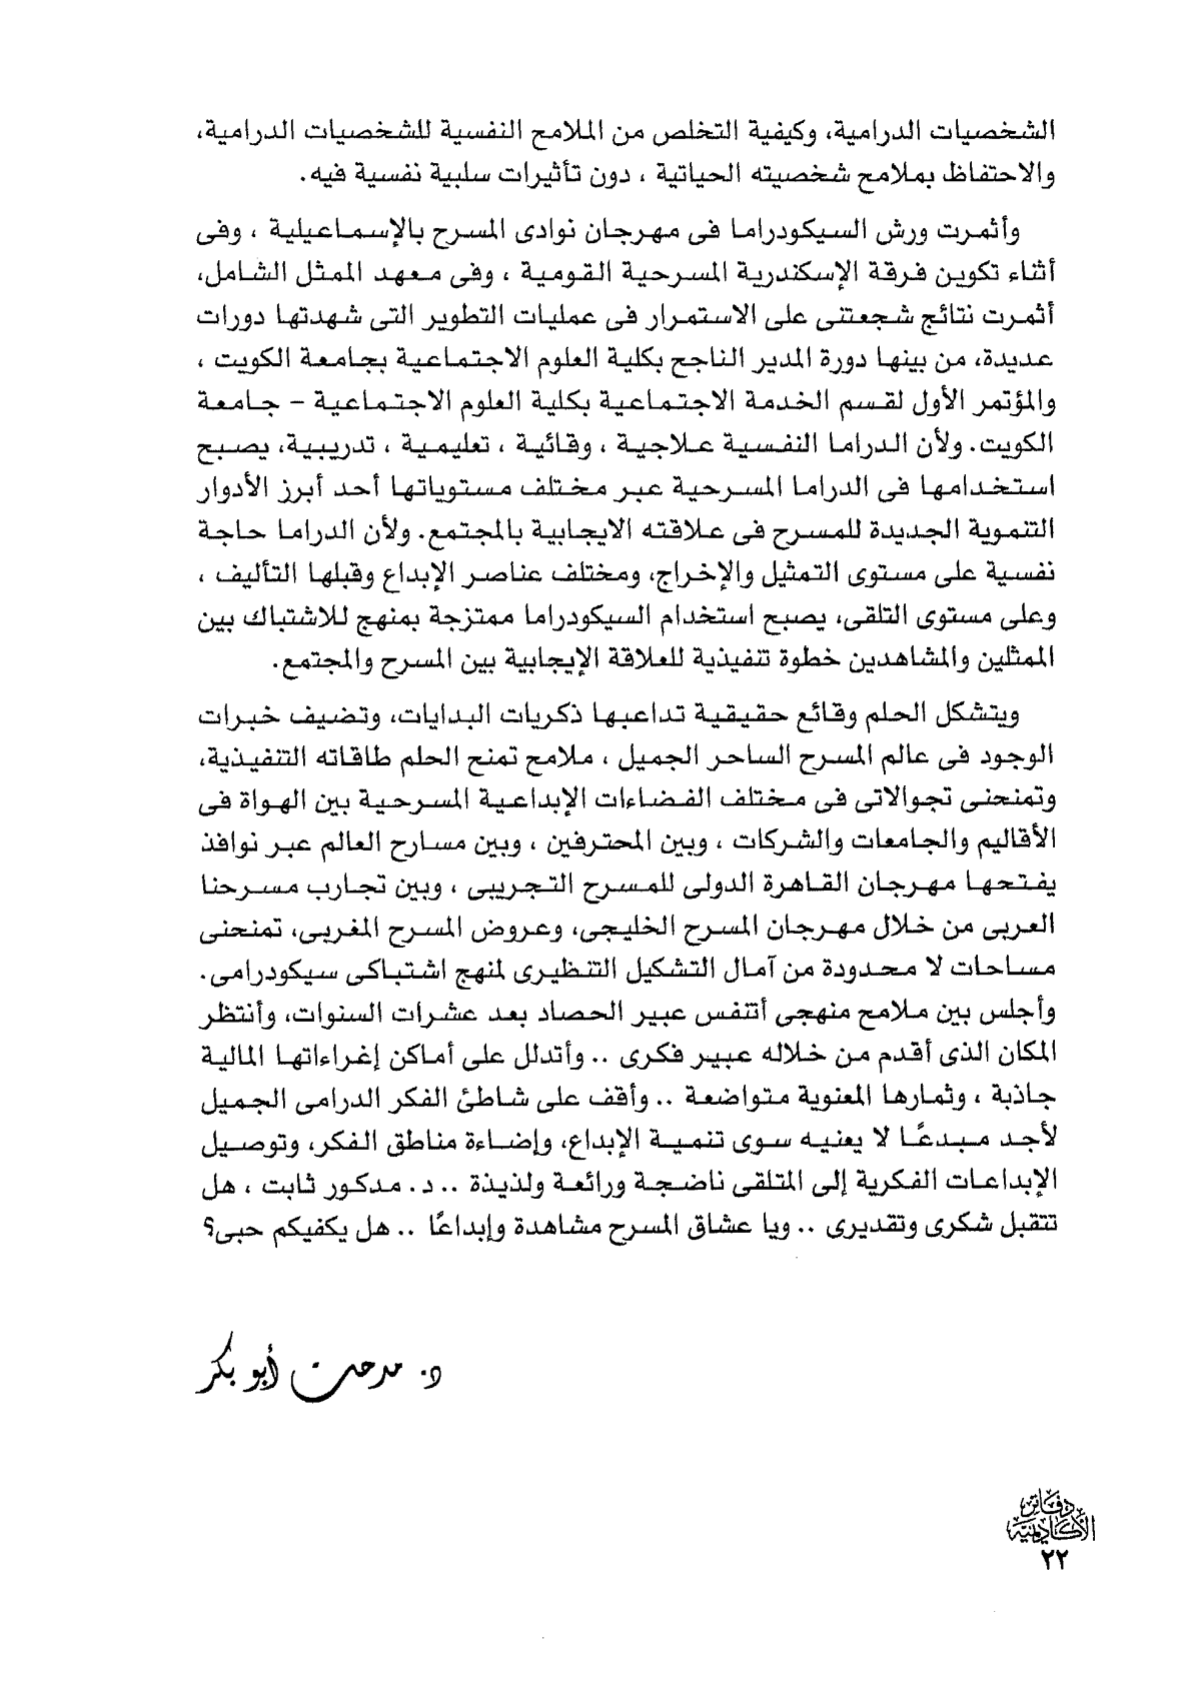 الشخصيات الدرامية، وكيفية التخلص من الملامح النفسية للشخصيات الدرامية،
والاحتفاظ بملامح شخصيته الحياتية ، دون تأثيرات سلبية نفسية فيه.
وأثمرت ورش السيكودراما فى مهرجان نوادى المسرح بالإسماعيلية ، وفى
أثناء تكوين فرقة الإسكندرية المسرحية القومية ، وفى معهد الممثل الشامل،
أثمرت نتائج شجعتنى على الاستمرار فى عمليات التطوير التى شهدتها دورات
عديدة، من بينها دورة المدير الناجح بكلية العلوم الاجتماعية بجامعة الكويت ،
والمؤتمر الأول لقسم الخدمة الاجتماعية بكلية العلوم الاجتماعية – جامعة
الكويت. ولأن الدراما النفسية علاجية ، وقائية ، تعليمية ، تدريبية، يصبح
استخدامها فى الدراما المسرحية عبر مختلف مستوياتها أحد أبرز الأدوار
التنموية الجديدة للمسرح فى علاقته الايجابية بالمجتمع. ولأن الدراما حاجة
نفسية على مستوى التمثيل والإخراج، ومختلف عناصر الإبداع وقبلها التأليف ،
وعلى مستوى التلقى، يصبح استخدام السيكودراما ممتزجة بمنهج للاشتباك بين
الممثلين والمشاهدين خطوة تنفيذية للعلاقة الإيجابية بين المسرح والمجتمع.
ويتشكل الحلم وقائع حقيقية تداعبها ذكريات البدايات، وتضيف خبرات
الوجود فى عالم المسرح الساحر الجميل ، ملامح تمنح الحلم طاقاته التنفيذية،
وتمنحنى تجوالاتى فى مختلف الفضاءات الإبداعية المسرحية بين الهواة فى
الأقاليم والجامعات والشركات ، وبين المحترفين ، وبين مسارح العالم عبر نوافذ
يفتحها مهرجان القاهرة الدولى للمسرح التجريبى ، وبين تجارب مسرحنا
العربى من خلال مهرجان المسرح الخليجى، وعروض المسرح المغربى، تمنحنى
مساحات لا محدودة من آمال التشكيل التنظيرى لمنهج اشتباكى سيكودرامى.
وأجلس بين ملامح منهجى أتنفس عبير الحصاد بعد عشرات السنوات، وأنتظر
المكان الذى أقدم من خلاله عبير فكرى .. وأتدلل على أماكن إغراءاتها المالية
جاذبة ، وثمارها المعنوية متواضعة .. وأقف على شاطئ الفكر الدرامى الجميل
لأجد مبدعًا لا يعنيه سوى تنمية الإبداع، وإضاءة مناطق الفكر، وتوصيل
الإبداعات الفكرية إلى المتلقى ناضجة ورائعة ولذيذة .. د. مدكور ثابت ، هل
تتقبل شكرى وتقديرى .. ويا عشاق المسرح مشاهدة وإبداعًا .. هل يكفيكم حبى؟
د. مدحت أبو بكر
دفاتر
الأكاديمية
٢٢